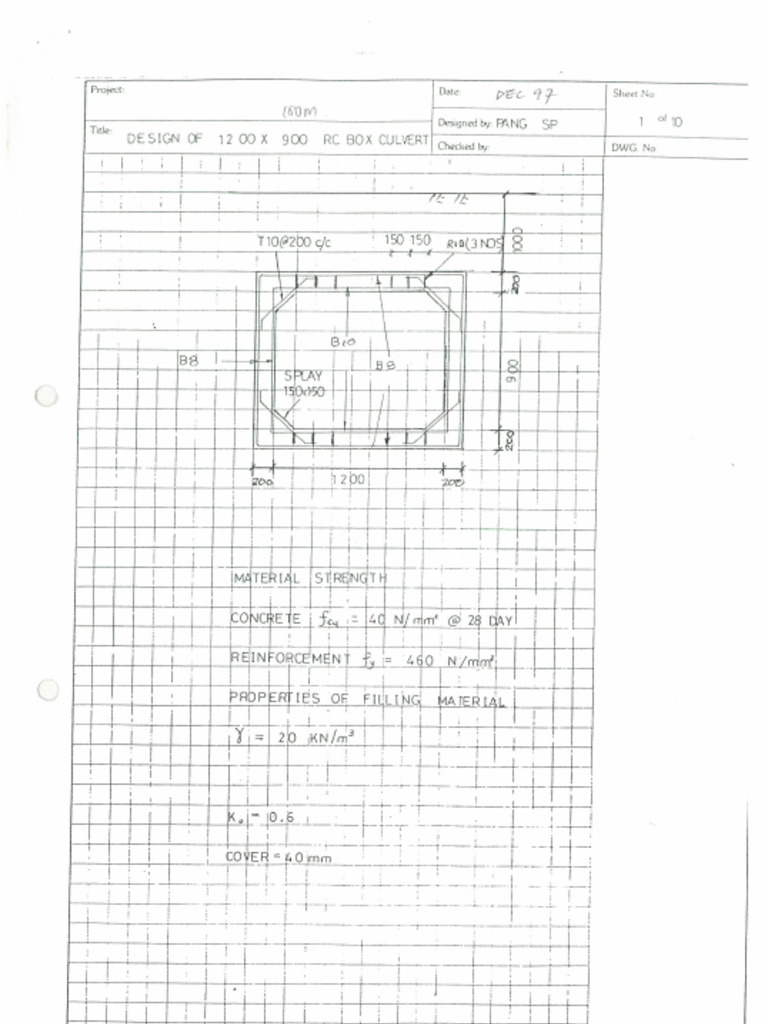 Project:
160m
Date: DEC 97
Sheet No
1 of 10
Title: DESIGN OF 1200 X 900 RC BOX CULVERT
Designed by: PANG SP
Checked by:
DWG. No
Y10@200 c/c
150 150
R10(3 NOS
1000
200
B10
B8
B8
SPLAY
150x150
900
200
200
1200
200
MATERIAL STRENGTH
CONCRETE fcu = 40 N/mm² @ 28 DAY
REINFORCEMENT fy = 460 N/mm²
PROPERTIES OF FILLING MATERIAL
γ = 20 KN/m³
Ko = 0.6
COVER = 40 mm